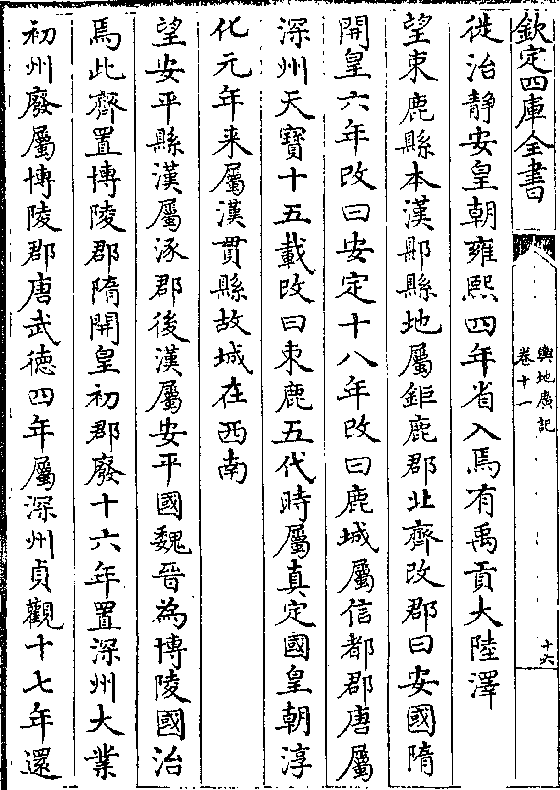 欽定四庫全書
輿地廣記
卷十一
十六
徙治靜安皇朝雍熙四年省入焉有禹貢大陸澤
望束鹿縣本漢鄡縣地屬鉅鹿郡北齊改郡曰安國隋
開皇六年改曰安定十八年改曰鹿城屬信都郡唐屬
深州天寶十五載改曰束鹿五代時屬真定國皇朝淳
化元年来屬漢貫縣故城在西南
望安平縣漢屬涿郡後漢屬安平國魏晉為博陵國治
焉此齊置博陵郡隋開皇初郡廢十六年置深州大業
初州廢屬博陵郡唐武德四年屬深州貞觀十七年還